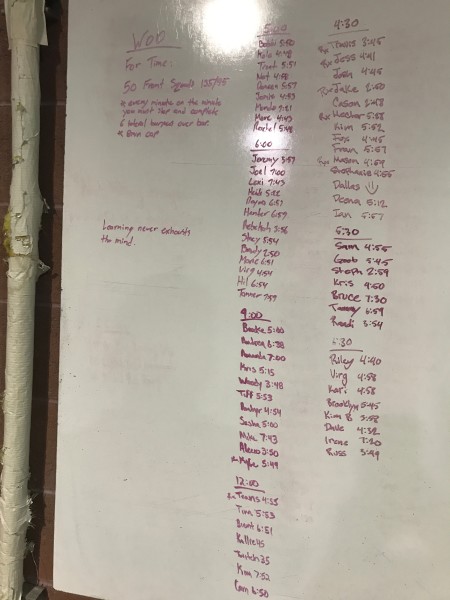 WOD
For Time:
50 Front Squats
* every minute on the minute
you must stop and complete
5 lateral burpees over bar
* 8min cap
Learning never exhausts
the mind.
5:00
5:50
4:48
Trent 5:51
Mat 4:58
Doreen 5:57
Jamie 4:53
Marc 4:43
Rachel 5:48
6:00
Jeremy 3:57
Joel 7:00
Lexi 7:43
Heidi 5:22
6:57
Hunter 6:59
Rebekah 3:56
Stacy 5:54
Brady 2:50
6:51
Virg 4:54
Hil 6:54
Tanner 7:59
9:00
Brooke 5:00
Andrea
Amanda 7:00
Kris 5:15
Woody 3:48
Tiff 5:53
4:54
Sasha 5:00
Mike 7:43
Alexa 3:50
Rx 3:49
12:00
Rx Travis 4:55
Tina 5:53
Brent 6:51
Kallie
Kim 7:52
Cam 6:50
4:30
Rx Travis 3:45
Rx Jess 4:41
Josh 4:45
Rx Jake 2:50
Cason 3:48
Rx Heather 5:58
Kim 5:52
4:45
Fran 5:57
Rx Mason 4:59
Stephanie 4:55
Dallas
Deena 5:12
Ian 5:57
5:30
Sam 4:55
5:45
Steph 2:59
Kris 4:50
Bruce 7:30
Tammy 5:59
Randi 3:54
6:30
Riley 4:40
Virg 4:58
Kari 4:58
Brooklyn 5:45
Kim B 3:58
Dale 4:32
Irene 7:20
Russ 3:59